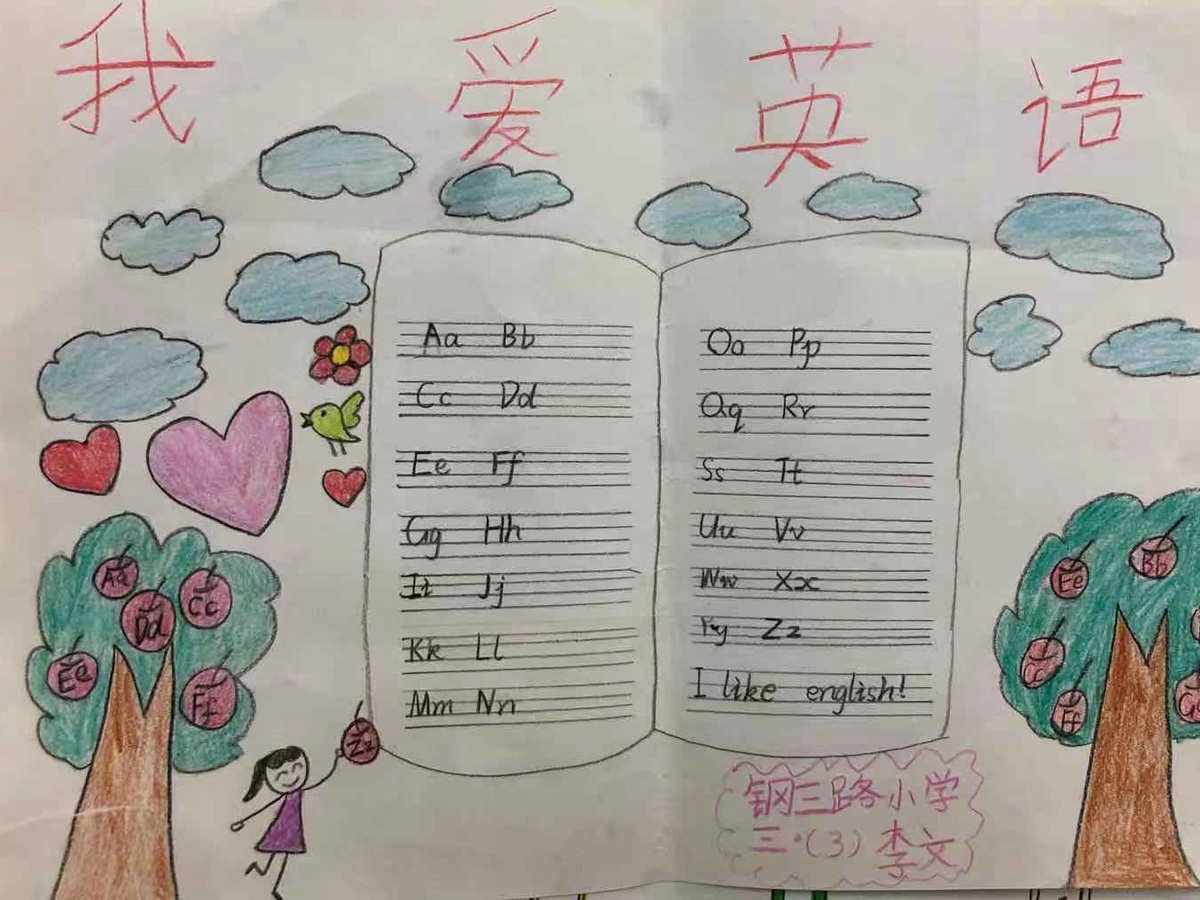 我爱英语
Aa Bb
Cc Dd
Ee Ff
Gg Hh
Ii Jj
Kk Ll
Mm Nn
Oo Pp
Qq Rr
Ss Tt
Uu Vv
Ww Xx
Yy Zz
I like english!
Aa
Cc
Dd
Ee
Ff
Zz
Bb
Ee
Ff
钢三路小学
三·(3) 李文